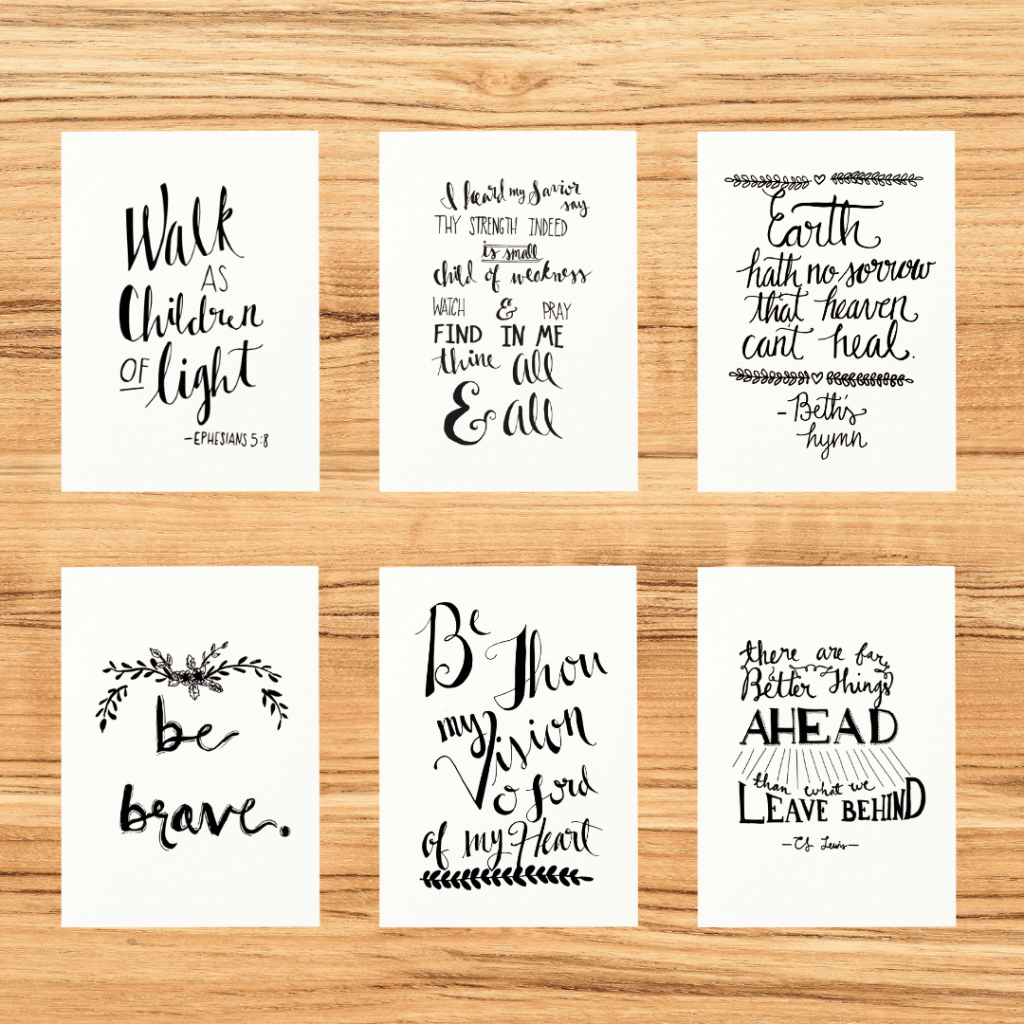 Walk
AS
Children
OF light
—EPHESIANS 5:8
I heard my Savior
say
THY STRENGTH INDEED
is small
child of weakness
WATCH & PRAY
FIND IN ME
thine all
& all
Earth
hath no sorrow
that heaven
can't heal.
-Beth's
hymn
be
brave.
Be
Thou
my
Vision
O Lord
of my Heart
there are far,
Better Things
AHEAD
than what we
LEAVE BEHIND
—CS Lewis—